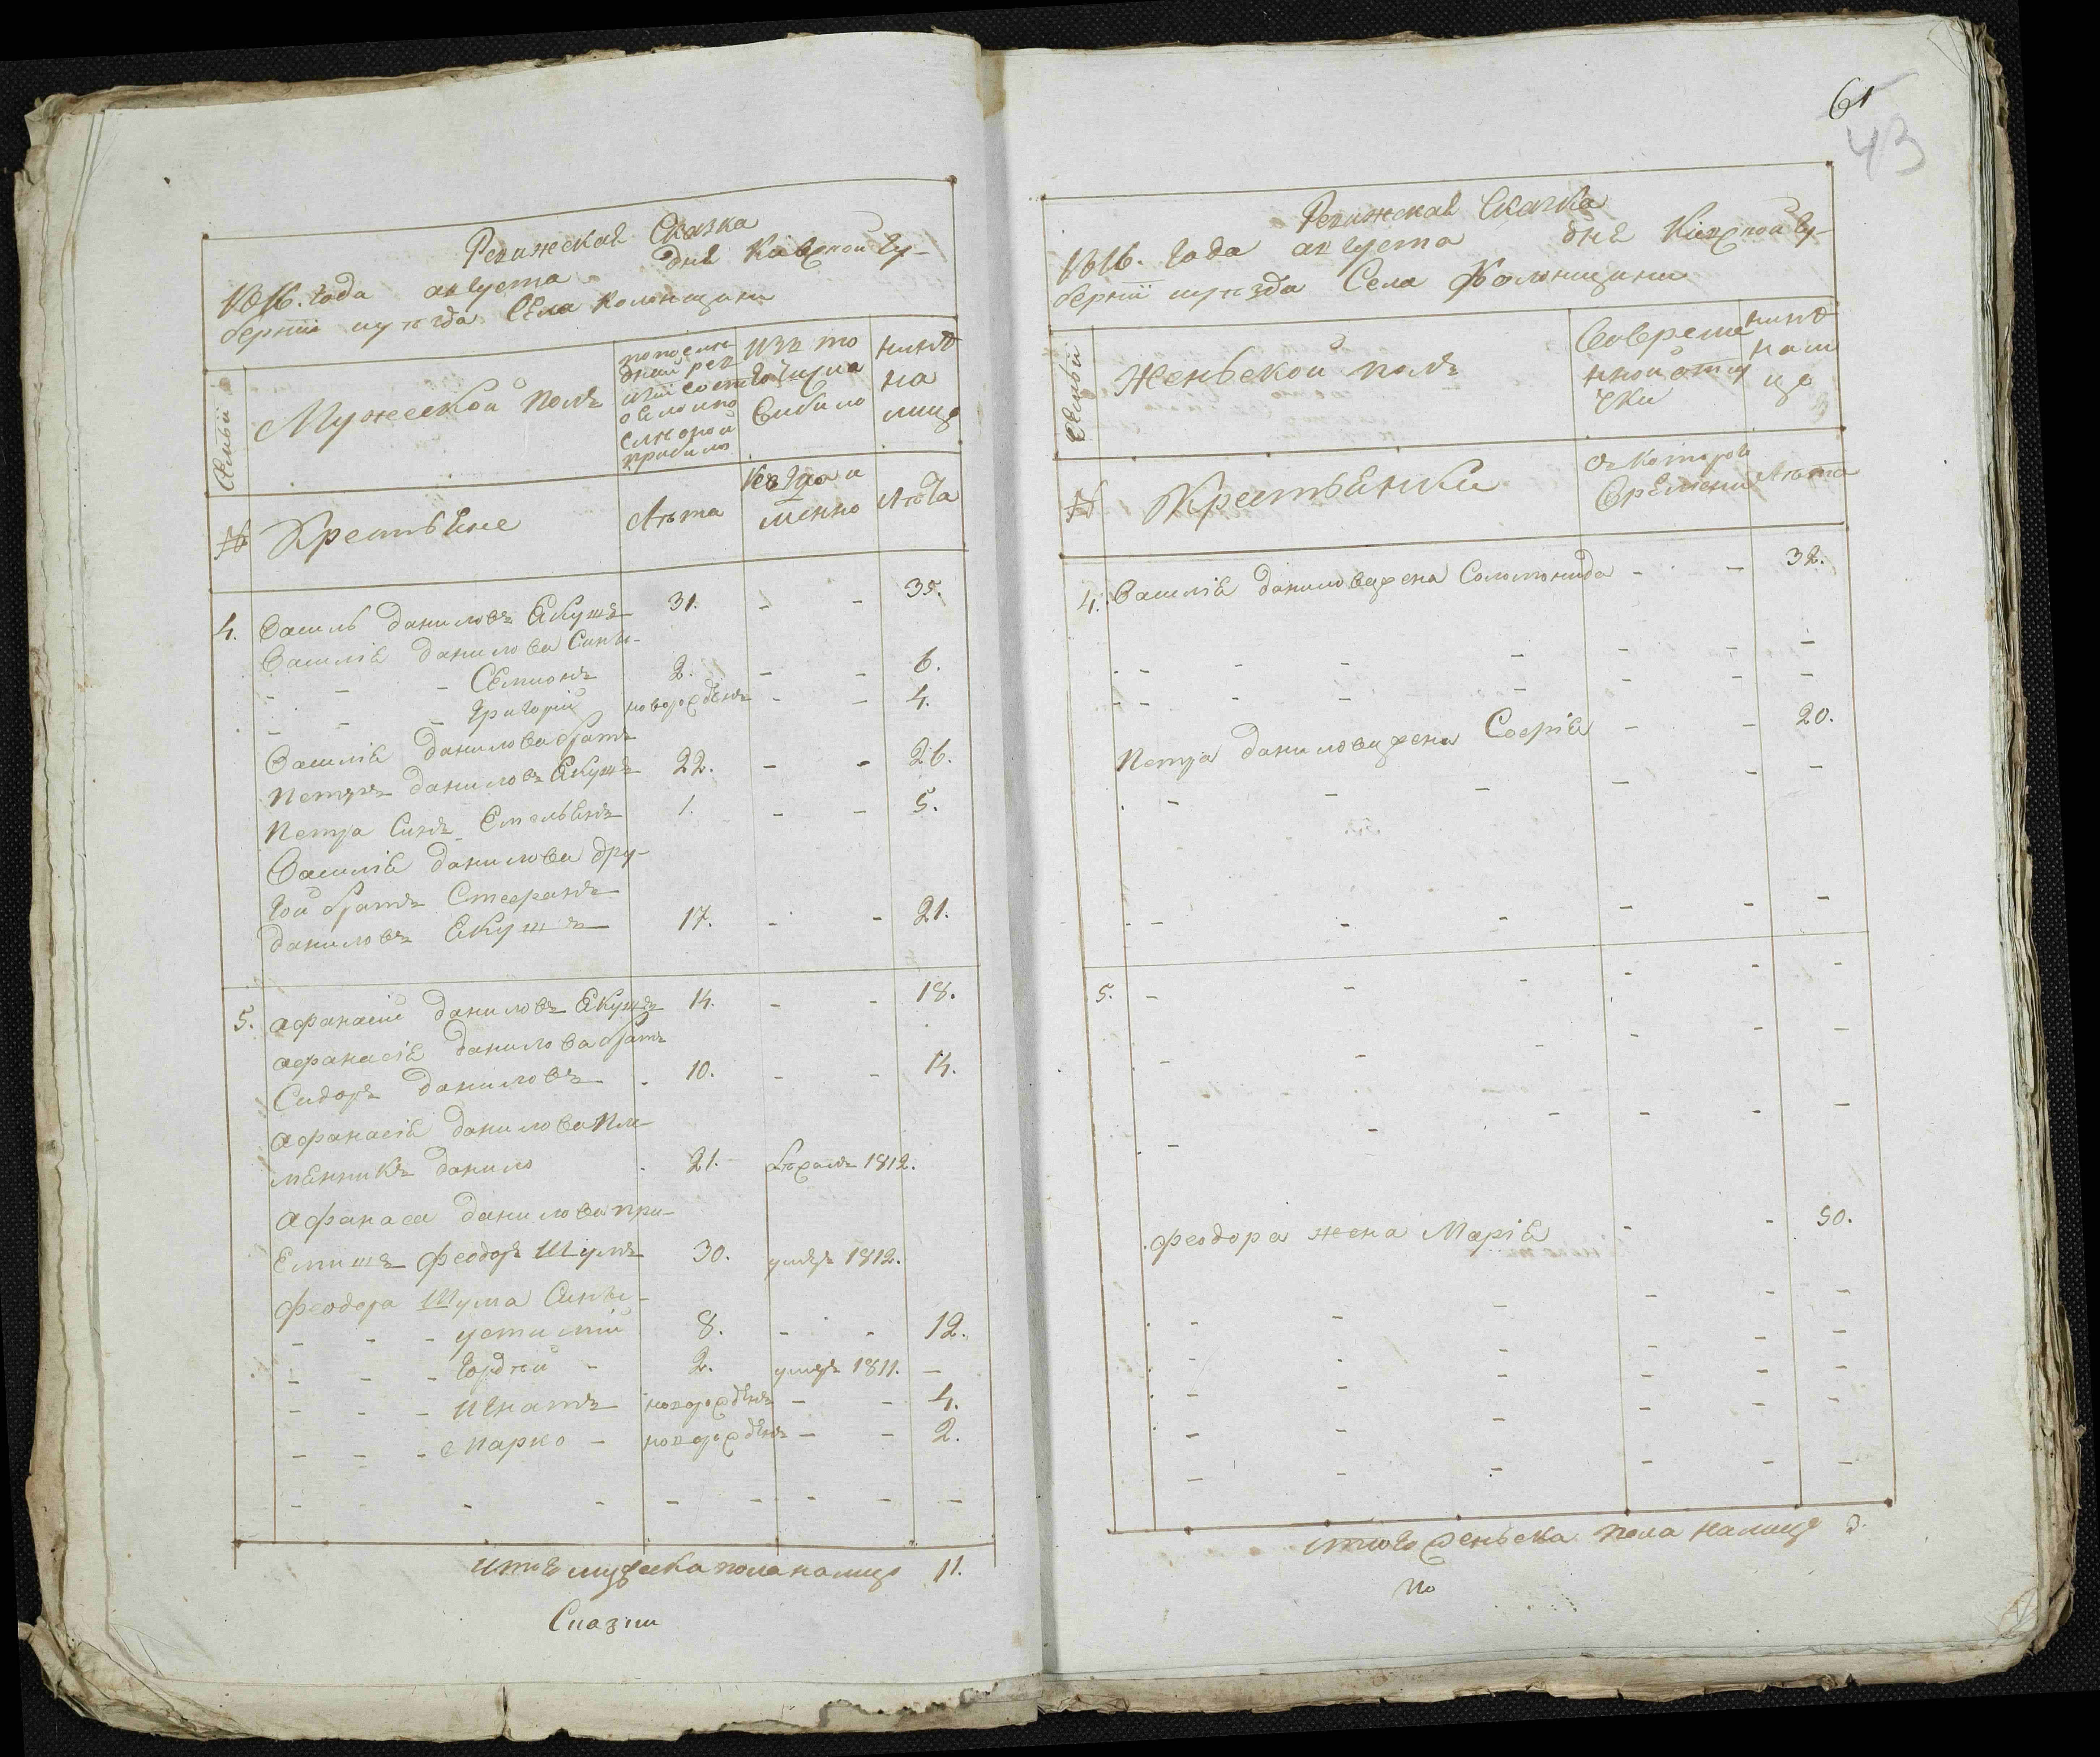 Ревижская Сказка
1816. года августа дня Киевской гу-
бернии и уезда Села Колонщини
Семьи
Мужеской полъ
по после
дней рев
изіи состо
ело и по
сле оной
прибило
изъ то
го числа
Выбило
нинѣ
на
лице
№
Крестьяне
Лѣта
Когда и
менно
Лѣта
4. Василь Даниловъ Якушъ 31. - - 35.
Василія Данилова Сины-
- - - Семионъ 2. - - 6.
- - - Григорій новорожденъ - - 4.
Василія Данилова братъ
Петръ Даниловъ Якушъ 22. - - 26.
Петра Синъ Емельянъ 1. - - 5.
Василія Данилова дру-
гой братъ Стефанъ
Даниловъ Якушъ 17. - - 21.
5. Афанасій Даниловъ Якушъ 14. - - 18.
Афанасія Данилова братъ
Сидоръ Даниловъ - 10. - - 14.
Афанасія Данилова пле-
мянникъ Данило - 21. 1812.
Афанаса Данилова при-
емишъ Феодоръ Шумъ 30. умеръ 1812.
Феодора Шума Сины-
- - - Устимій 8. - - 12.
- - - Гордѣй - 2. умеръ 1811. -
- - - Игнатъ новорожденъ - - 4.
- - - Марко - новорожденъ - - 2.
Итого мужеска пола налице 11.
Сказки
61
43
Ревижская Сказка
1816. Года августа дня Киевской Гу-
берніи и уѣзда Села Колонщини
Семьи
Женьской полъ
Во време
нной отлу
чки
нинѣ
нали
це
№
Крестьянки
Съ которого
Времени
Лѣта
4. Василія Данилова жена Соломонида - - 32.
Петра Данилова жена Софія - - 20.
5.
Феодора жена Марія - - 50.
Итого женьска пола налице 3.
По